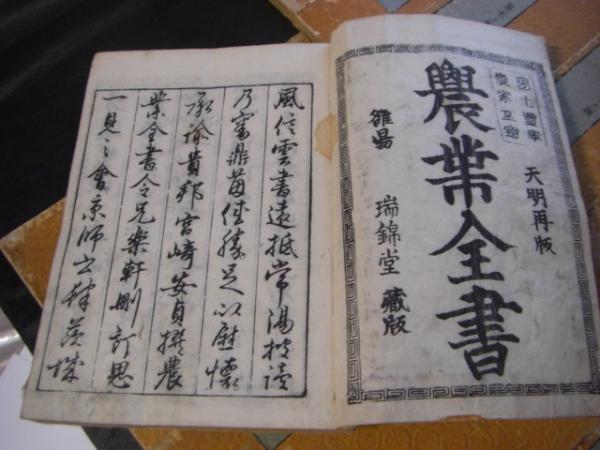 天明再版
農業全書
雒陽 瑞錦堂 藏版
風信雲書遠抵常陽披讀
乃審鼎茵佳勝足以慰懷
承諭貴邦宮崎安貞撰農
業全書令兄樂軒刪訂思
一見之會京師書肆茨城